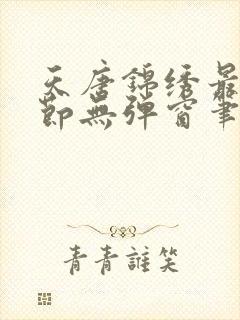 天唐锦绣最
节无弹窗笔
青青谁笑